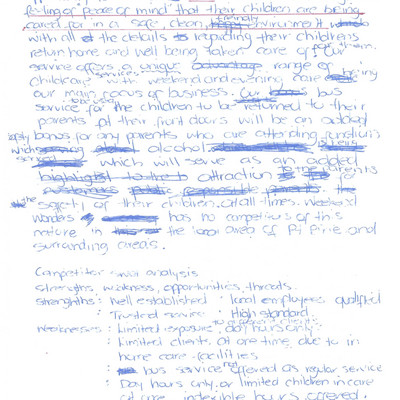 feeling of peace of mind that their children are being
cared for in a safe, clean, friendly environment
with all the details regarding their childrens
return home and well being taken care of for them. Our
service offers a unique range of
childcare services with weekend and evening care being
our main focus of business. Our bus
service for the children to be returned to their
parents at their front doors will be an added
safety bonus for any parents who are attending functions
which alcohol
which will serve as an added
attraction to the parents
for the safety of their children. at all times. Weekend
wonders has no competitors of this
nature in the local area of Pt Pirie and
surrounding areas.
Competitor swot analysis
strengths, weakness, opportunities, threats.
strengths: well established · local employees qualified
: Trusted service · High standard
weaknesses: Limited exposure, day hours only
: Limited clients at one time due to in
home care facilities
: bus service not offered as regular service
: Day hours only or limited children in care
at care inflexible hours offered.